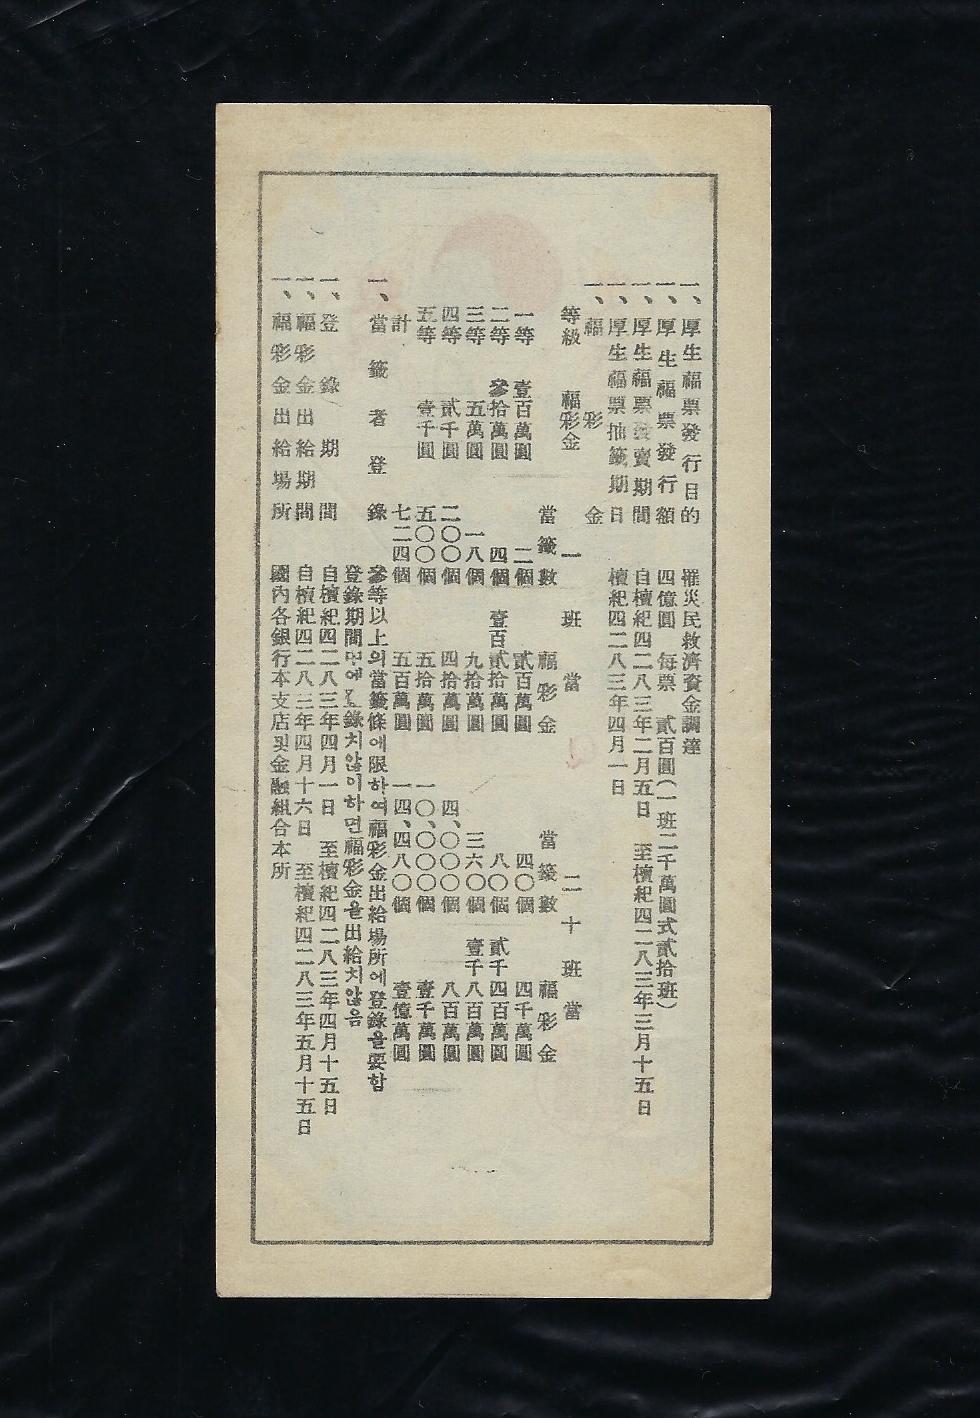 一、厚生福票發行目的 罹災民救濟資金調達
一、厚生福票發行額 四億圓 每票 貳百圓(一班二千萬圓式貳拾班)
一、厚生福票發賣期間 自檀紀四二八三年二月五日 至檀紀四二八三年三月十五日
一、厚生福票抽籤期日 檀紀四二八三年四月一日
一、福彩金
等級 福彩金 一班當 二十班當
當籤數 福彩金 當籤數 福彩金
一等 壹百萬圓 二個 貳百萬圓 四〇個 四千萬圓
二等 參拾萬圓 四個 壹百貳拾萬圓 八〇個 貳千四百萬圓
三等 五萬圓 一八個 九拾萬圓 三六〇個 壹千八百萬圓
四等 貳千圓 二〇〇個 四拾萬圓 四、〇〇〇個 八百萬圓
五等 壹千圓 五〇〇個 五拾萬圓 一〇、〇〇〇個 壹千萬圓
計 七二四個 五百萬圓 一四、四八〇個 壹億萬圓
一、當籤者登錄 參等以上의當籤條에限하여福彩金出給場所에登錄을要함
登錄期間中에 錄치않이하면福彩金을出給치않음
一、登錄期間 自檀紀四二八三年四月一日 至檀紀四二八三年四月十五日
一、福彩金出給期間 自檀紀四二八三年四月十六日 至檀紀四二八三年五月十五日
一、福彩金出給場所 國內各銀行本支店및金融組合本所